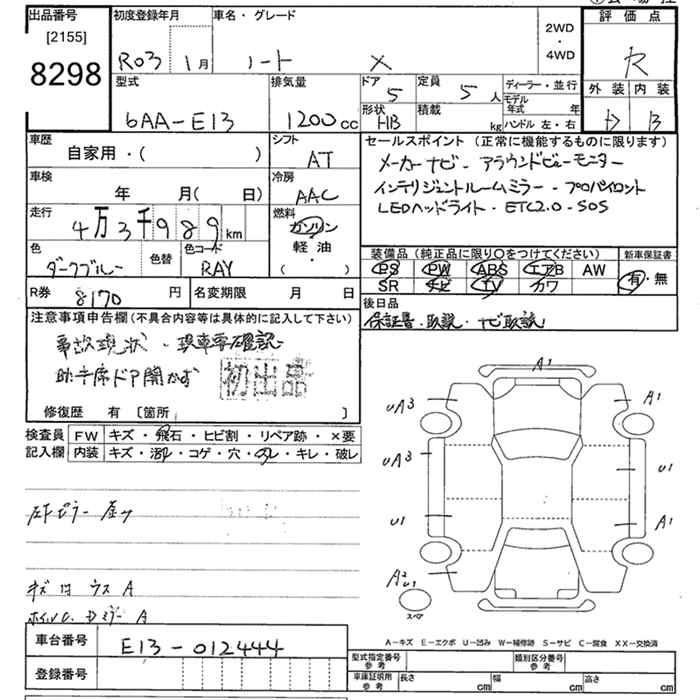 出品番号
[2155]
8298
初度登録年月
R03 1月
車名・グレード
ノート X
2WD
・
4WD
評価点
R
外装 内装
D B
型式
6AA-E13
排気量
1200 cc
ドア
5
定員
5 人
形状
HB
積載
kg
ディーラー・並行
モデル年式 年
ハンドル 左・右
車歴
自家用・( )
シフト
AT
車検
年 月( 日)
冷房
AAC
走行
4万3千989 km
燃料
ガソリン
軽油
( )
色
ダークブルー
色替
色コード
RAY
R券 8170 円
名変期限 月 日
セールスポイント(正常に機能するものに限ります)
メーカーナビ・アラウンドビューモニター
インテリジェントルームミラー・プロパイロット
LEDヘッドライト・ETC2.0・SOS
装備品(純正品に限り○をつけてください)
PS PW ABS エアB AW
SR ナビ TV カワ
新車保証書
有・無
後日品
保証書・取説・ナビ取説
注意事項申告欄(不具合内容等は具体的に記入して下さい)
事故現状・現車要確認
助手席ドア開かず
初出品
修復歴 有 [箇所 ]
検査員
記入欄
FW キズ・飛石・ヒビ割・リペア跡・×要
内装 キズ・汚レ・コゲ・穴・スレ・キレ・破レ
左Fピラー 曲り
キズ 凹 ウス A
A
車台番号 E13-012444
登録番号
A1
UA3
A1
UA3
U1
U1
A1
A2
U1
スペア
A-キズ E-エクボ U-凹み W-補修跡 S-サビ C-腐食 XX-交換済
型式指定番号
参考
類別区分番号
参考
車庫証明用
参考
長さ cm
幅 cm
高さ cm